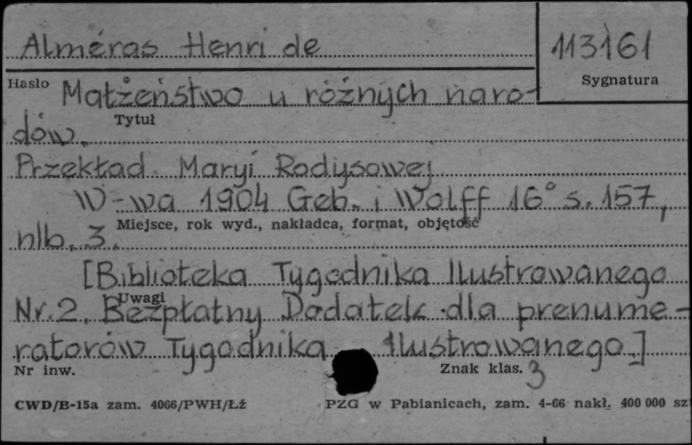 Alméras Henri de
113161
Hasło
Sygnatura
Małżeństwo u różnych naro-
Tytuł
dów.
Przekład Maryi Rodysowej
W-wa 1904 Geb. i Wolff 16° s. 157,
Miejsce, rok wyd., nakładca, format, objętość
nlb. 3.
[Biblioteka Tygodnika Ilustrowanego
Uwagi
Nr. 2. Bezpłatny Dodatek dla prenume-
ratorów Tygodnika Ilustrowanego.]
Nr inw.
Znak klas. 3
CWD/B-15a zam. 4066/PWH/Łż
PZG w Pabianicach, zam. 4-66 nakł. 400 000 sz